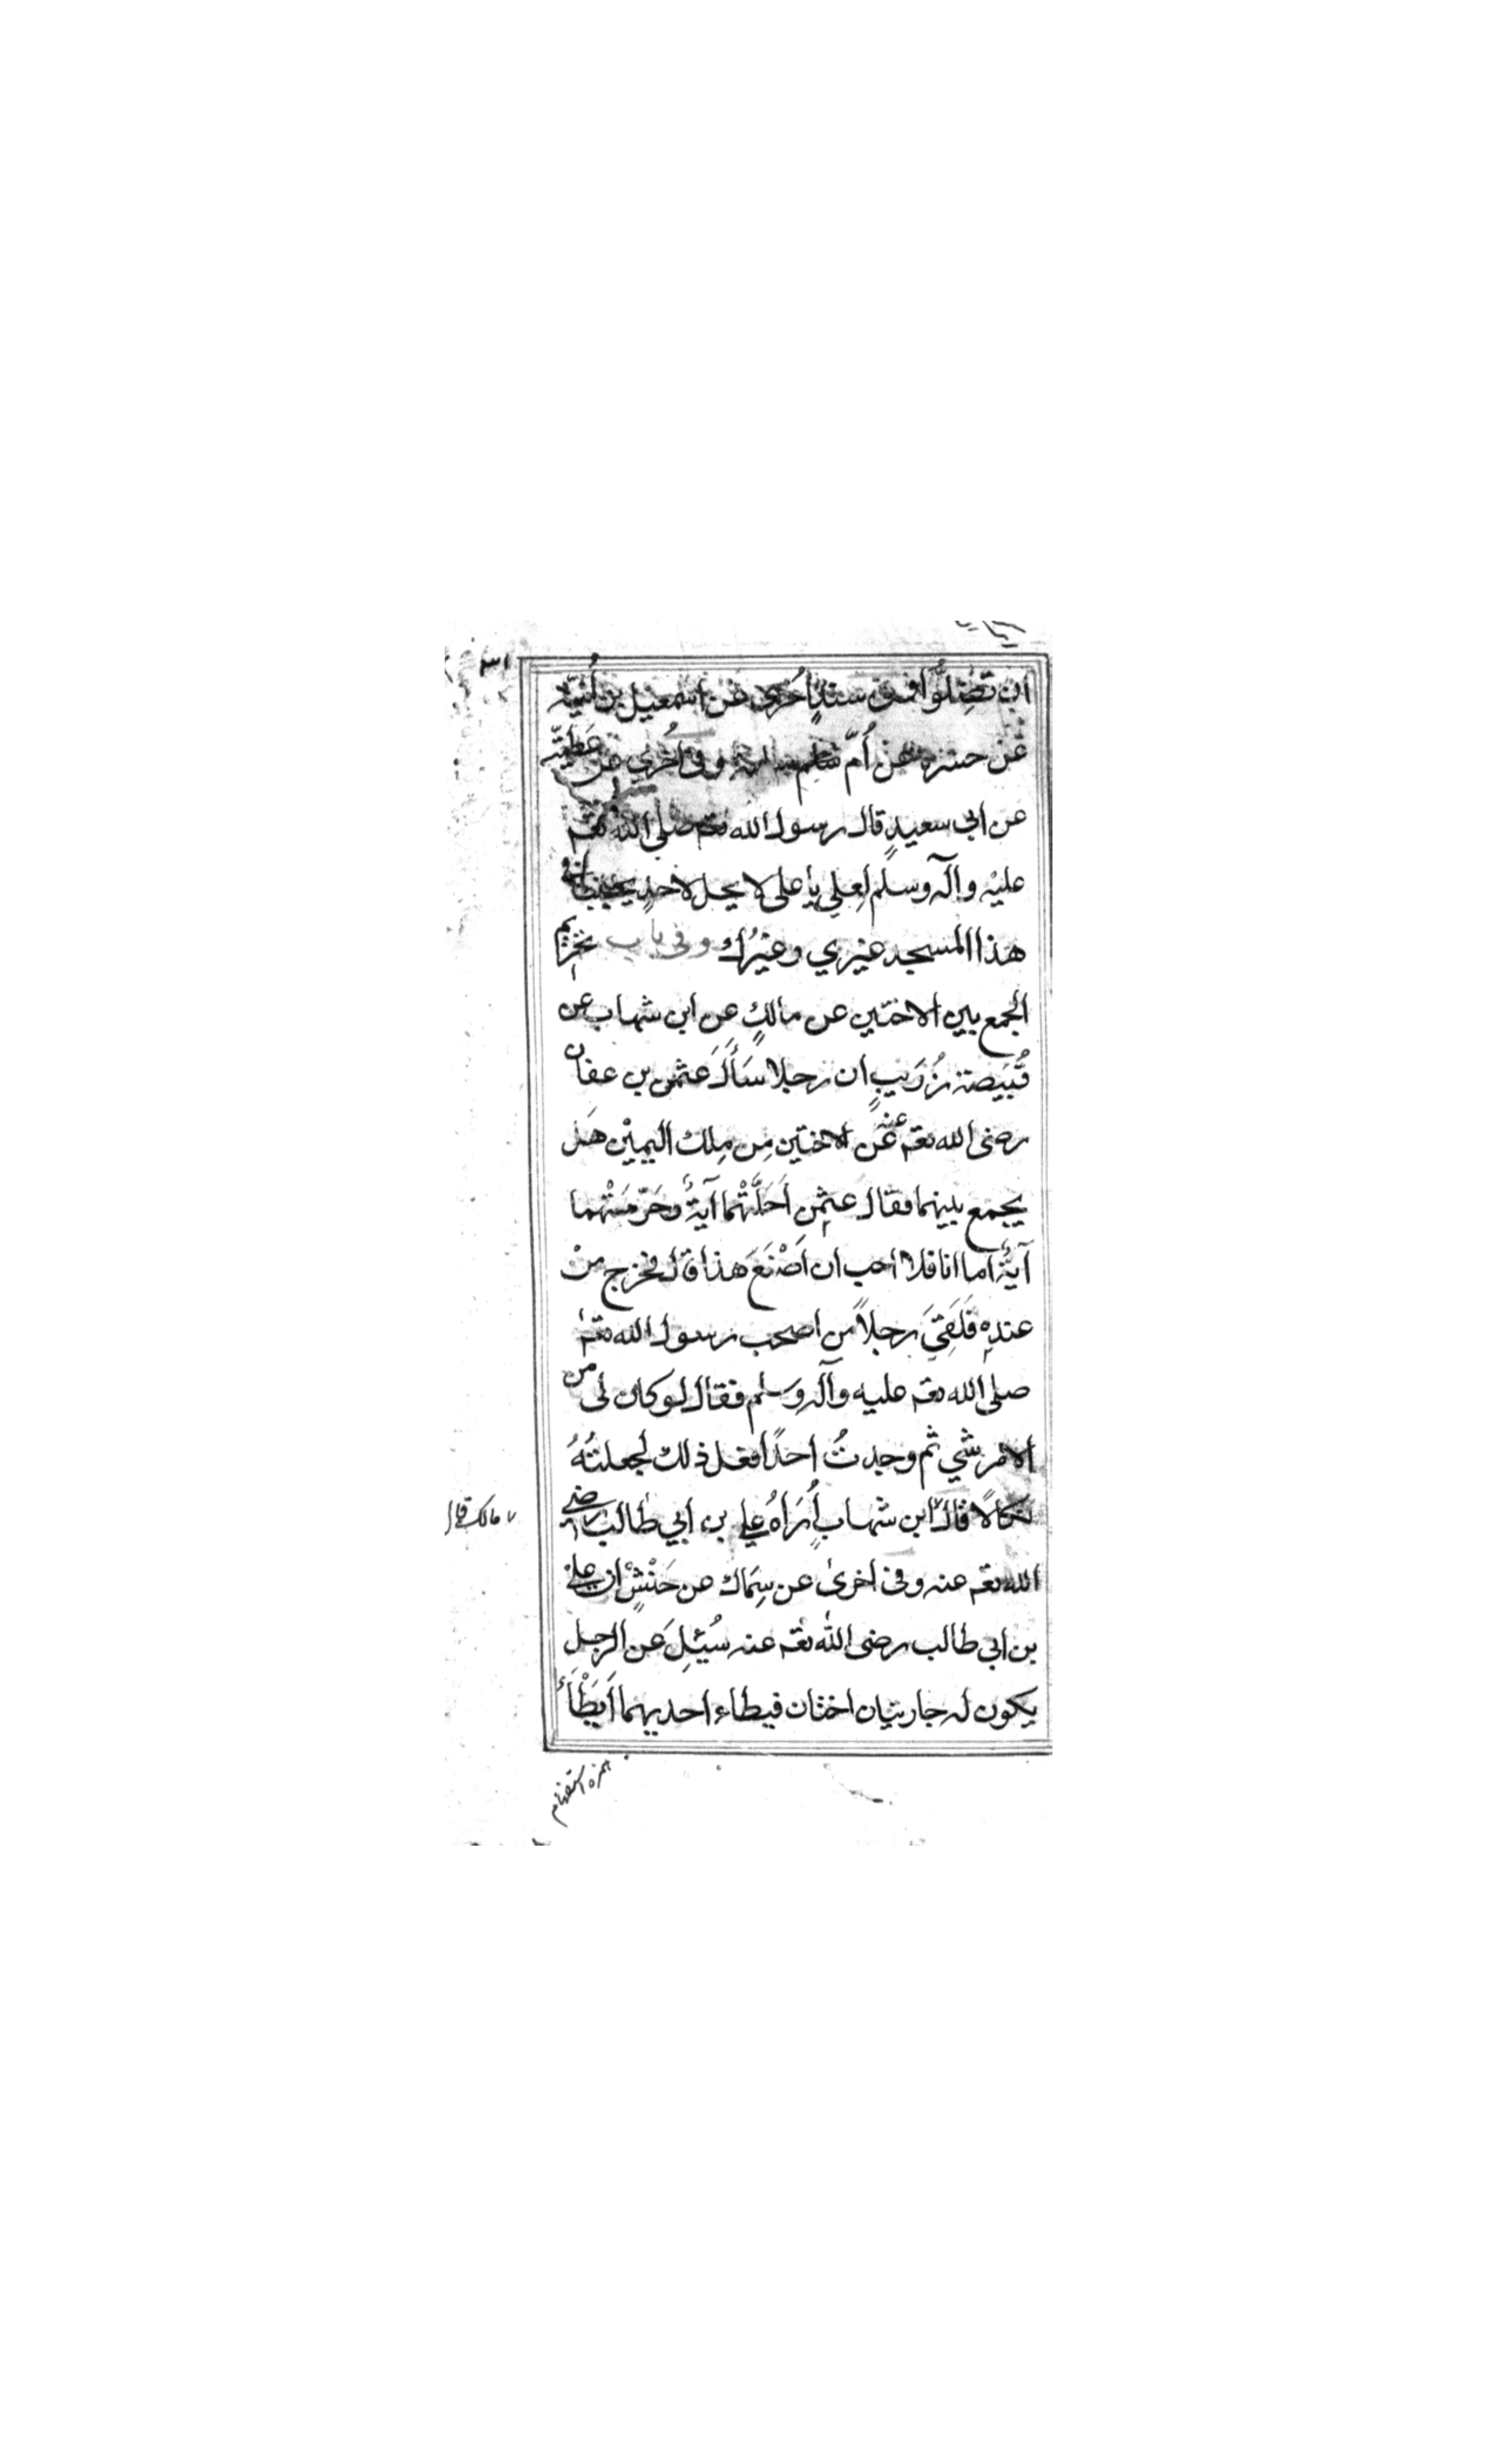 ٣١
ان تَضِلُّوا فمن سندٍ اُخرى عن اسمعيل بن اُميّة
عَن جسرة عن اُمّ سلمة وفى اُخرى عن عَطيّة
عن ابى سعيدٍ قال رسول الله تعم صلى الله تعم
عليه وآله وسلم لِعلى يا على لا يحل لاحدٍ يجنب فى
هذا المسجد غيري وغيرُك وفى باب تحريم
الجمع بين الاختين عن مالكٍ عن ابن شهاب عن
قُبَيصة زُرَيبٍ ان رجلا سَأَلَ عثمن بن عفان
رضى الله تعم عنه عَن الاختين مِن مِلك اليمين هَل
يجمع بينهما فقال عثمن اَحَلَّتْهما آيةٌ وحَرّمَتْهما
آيةٌ اما انا فلا احب ان اَصْنَعَ هذا قال فخرج مِنْ
عندِهِ فَلَقِيَ رجلاً من اصحب رسول الله تعم
صلى الله تعم عليه وآله وَسلم فقال لو كان لى من
الامر شي ثم وجدتُ احدًا فعل ذلك لجعلتُهُ
نكالًا قال ابن شهابٍ اُرَاهُ علي بن ابي طالب رضى
٧ مالك قال
الله تعم عنه وفى اخرى عن سِمَاك عن حَنْشٍ ان على
بن ابي طالب رضى الله تعم عنه سُئِلَ عَن الرجل
يكون له جاريتان اختان فيطاء احديهما اَيَطْأُ
همزه استفهام